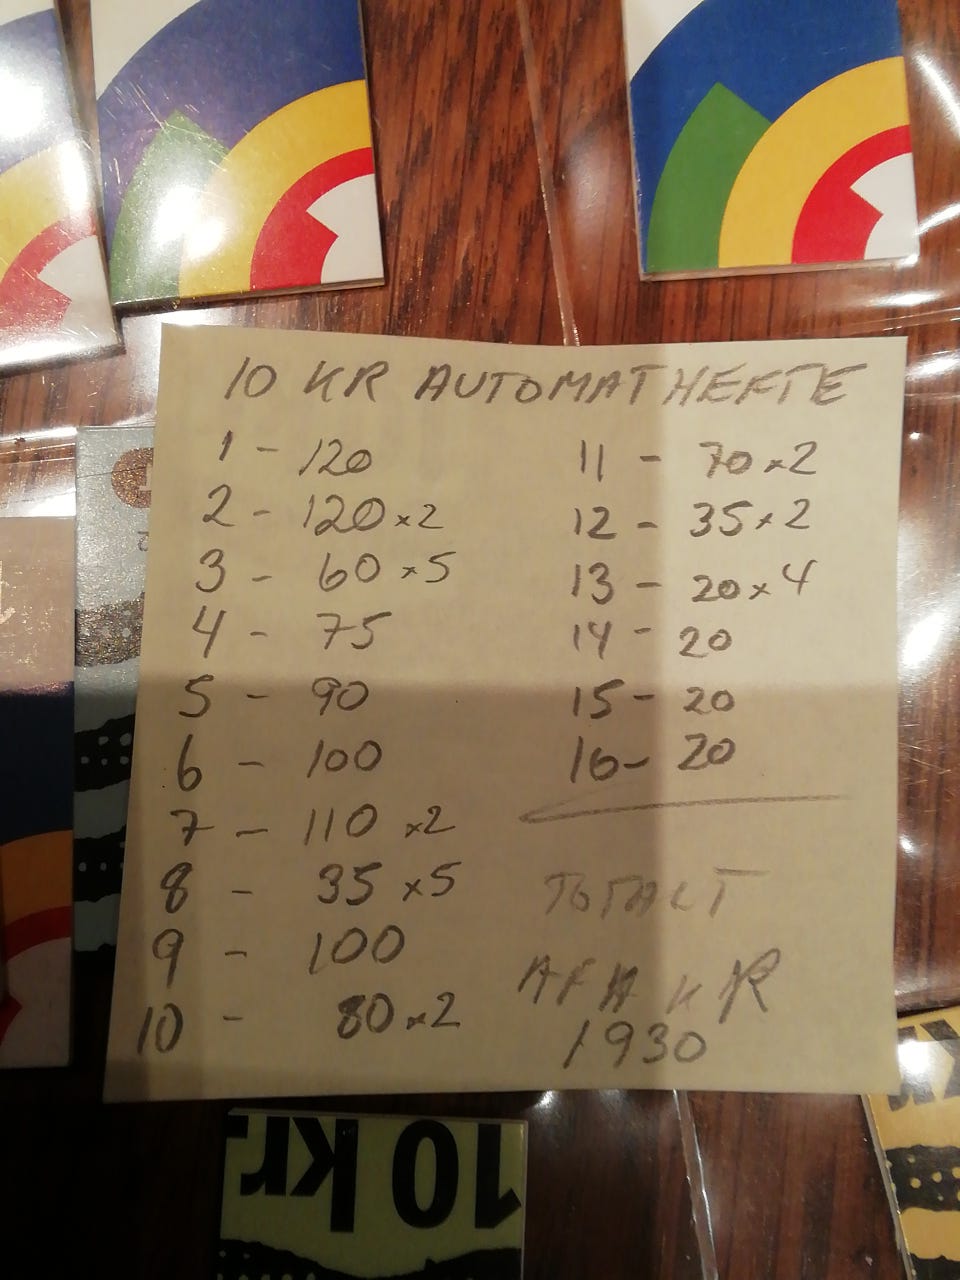 10 KR AUTOMATHEFTE
1 - 120
2 - 120 x2
3 - 60 x5
4 - 75
5 - 90
6 - 100
7 - 110 x2
8 - 35 x5
9 - 100
10 - 80 x2
11 - 70 x2
12 - 35 x2
13 - 20 x 4
14 - 20
15 - 20
16 - 20
TOTALT
AFA KR
1930
10 kr.